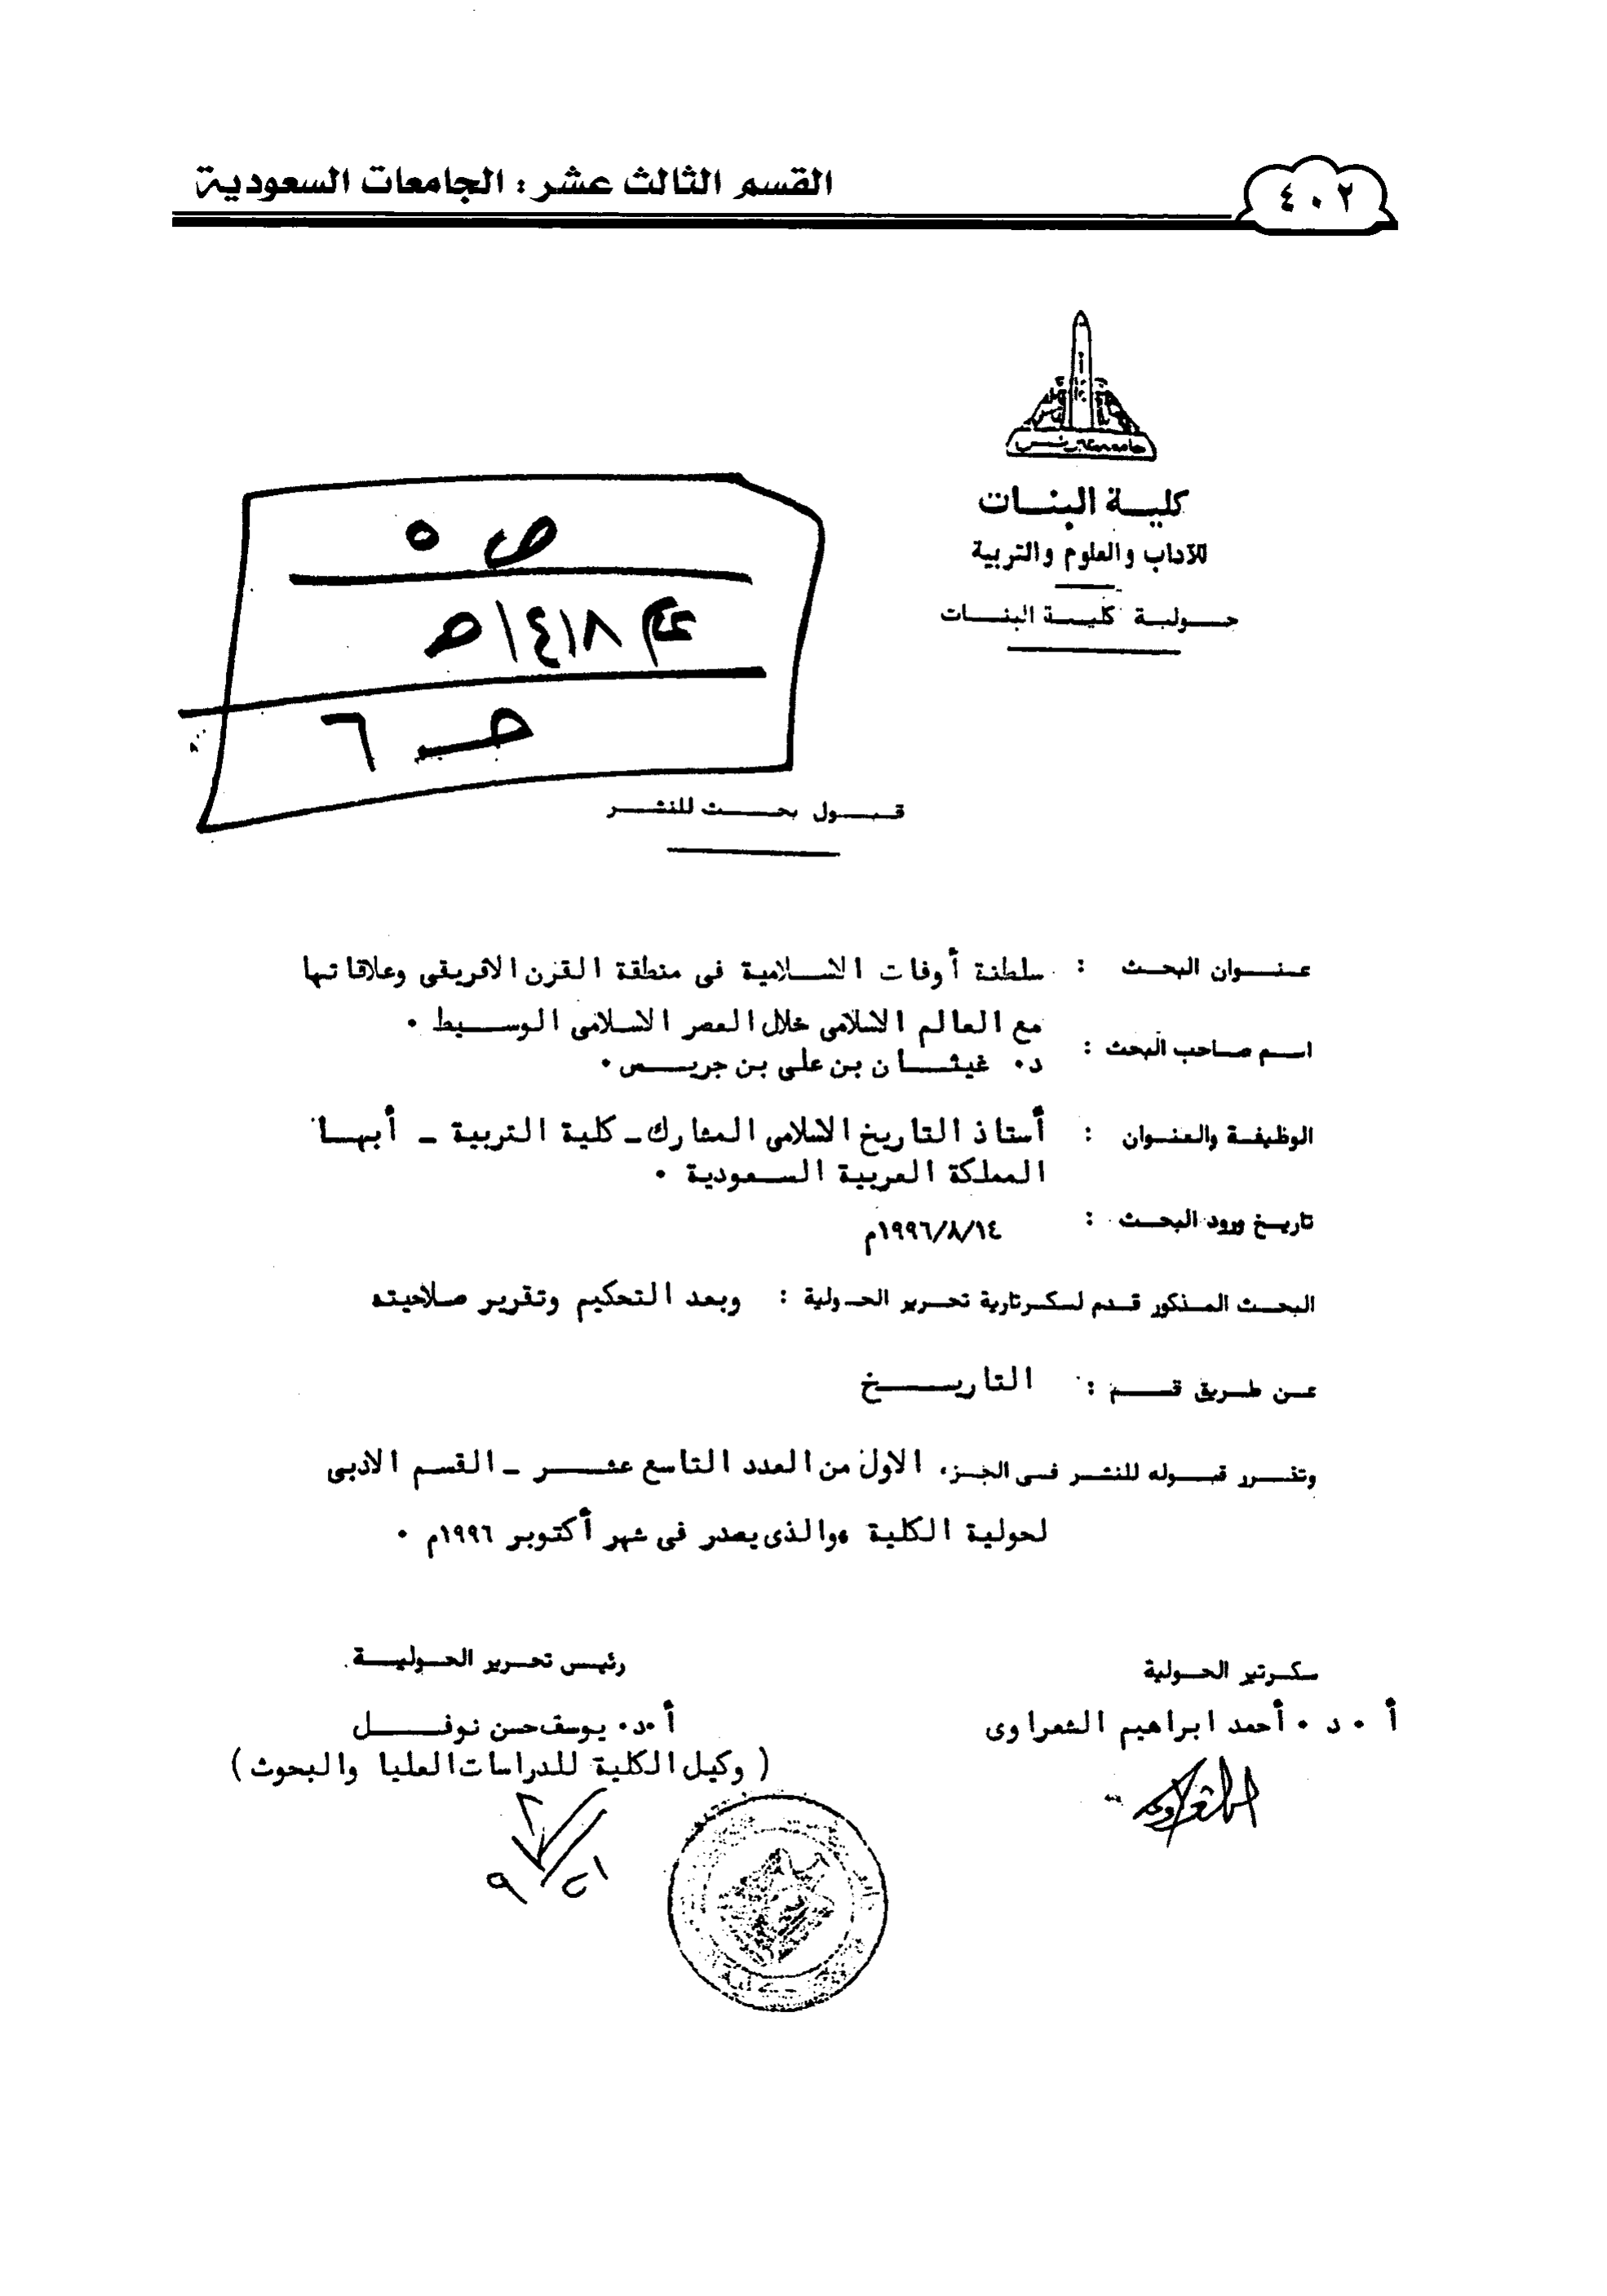 ٤٠٢
القسم الثالث عشر : الجامعات السعودية
جامعة عين شمس
كلية البنات
للآداب والعلوم والتربية
حولية كلية البنات
ص ٥
عام ١٤١٨ هـ
حـ ٦
قبول بحث للنشر
عنوان البحث : سلطنة أوفات الاسلامية فى منطقة القرن الافريقى وعلاقاتها
مع العالم الاسلامى خلال العصر الاسلامى الوسيط .
اسم صاحب البحث : د. غيثان بن على بن جريس .
الوظيفة والعنوان : أستاذ التاريخ الاسلامى المشارك - كلية التربية - أبها
المملكة العربية السعودية .
تاريخ ورود البحث : ١٩٩٦/٨/١٤م
البحث المذكور قدم لسكرتارية تحرير الحولية : وبعد التحكيم وتقرير صلاحيته
عن طريق قسم : التاريخ
وتقرر قبوله للنشر فى الجزء الاول من العدد التاسع عشر - القسم الادبى
لحولية الكلية ،والذى يصدر فى شهر أكتوبر ١٩٩٦م .
سكرتير الحولية
أ . د . أحمد ابراهيم الشعراوى
رئيس تحرير الحولية
أ.د. يوسف حسن نوفل
( وكيل الكلية للدراسات العليا والبحوث )